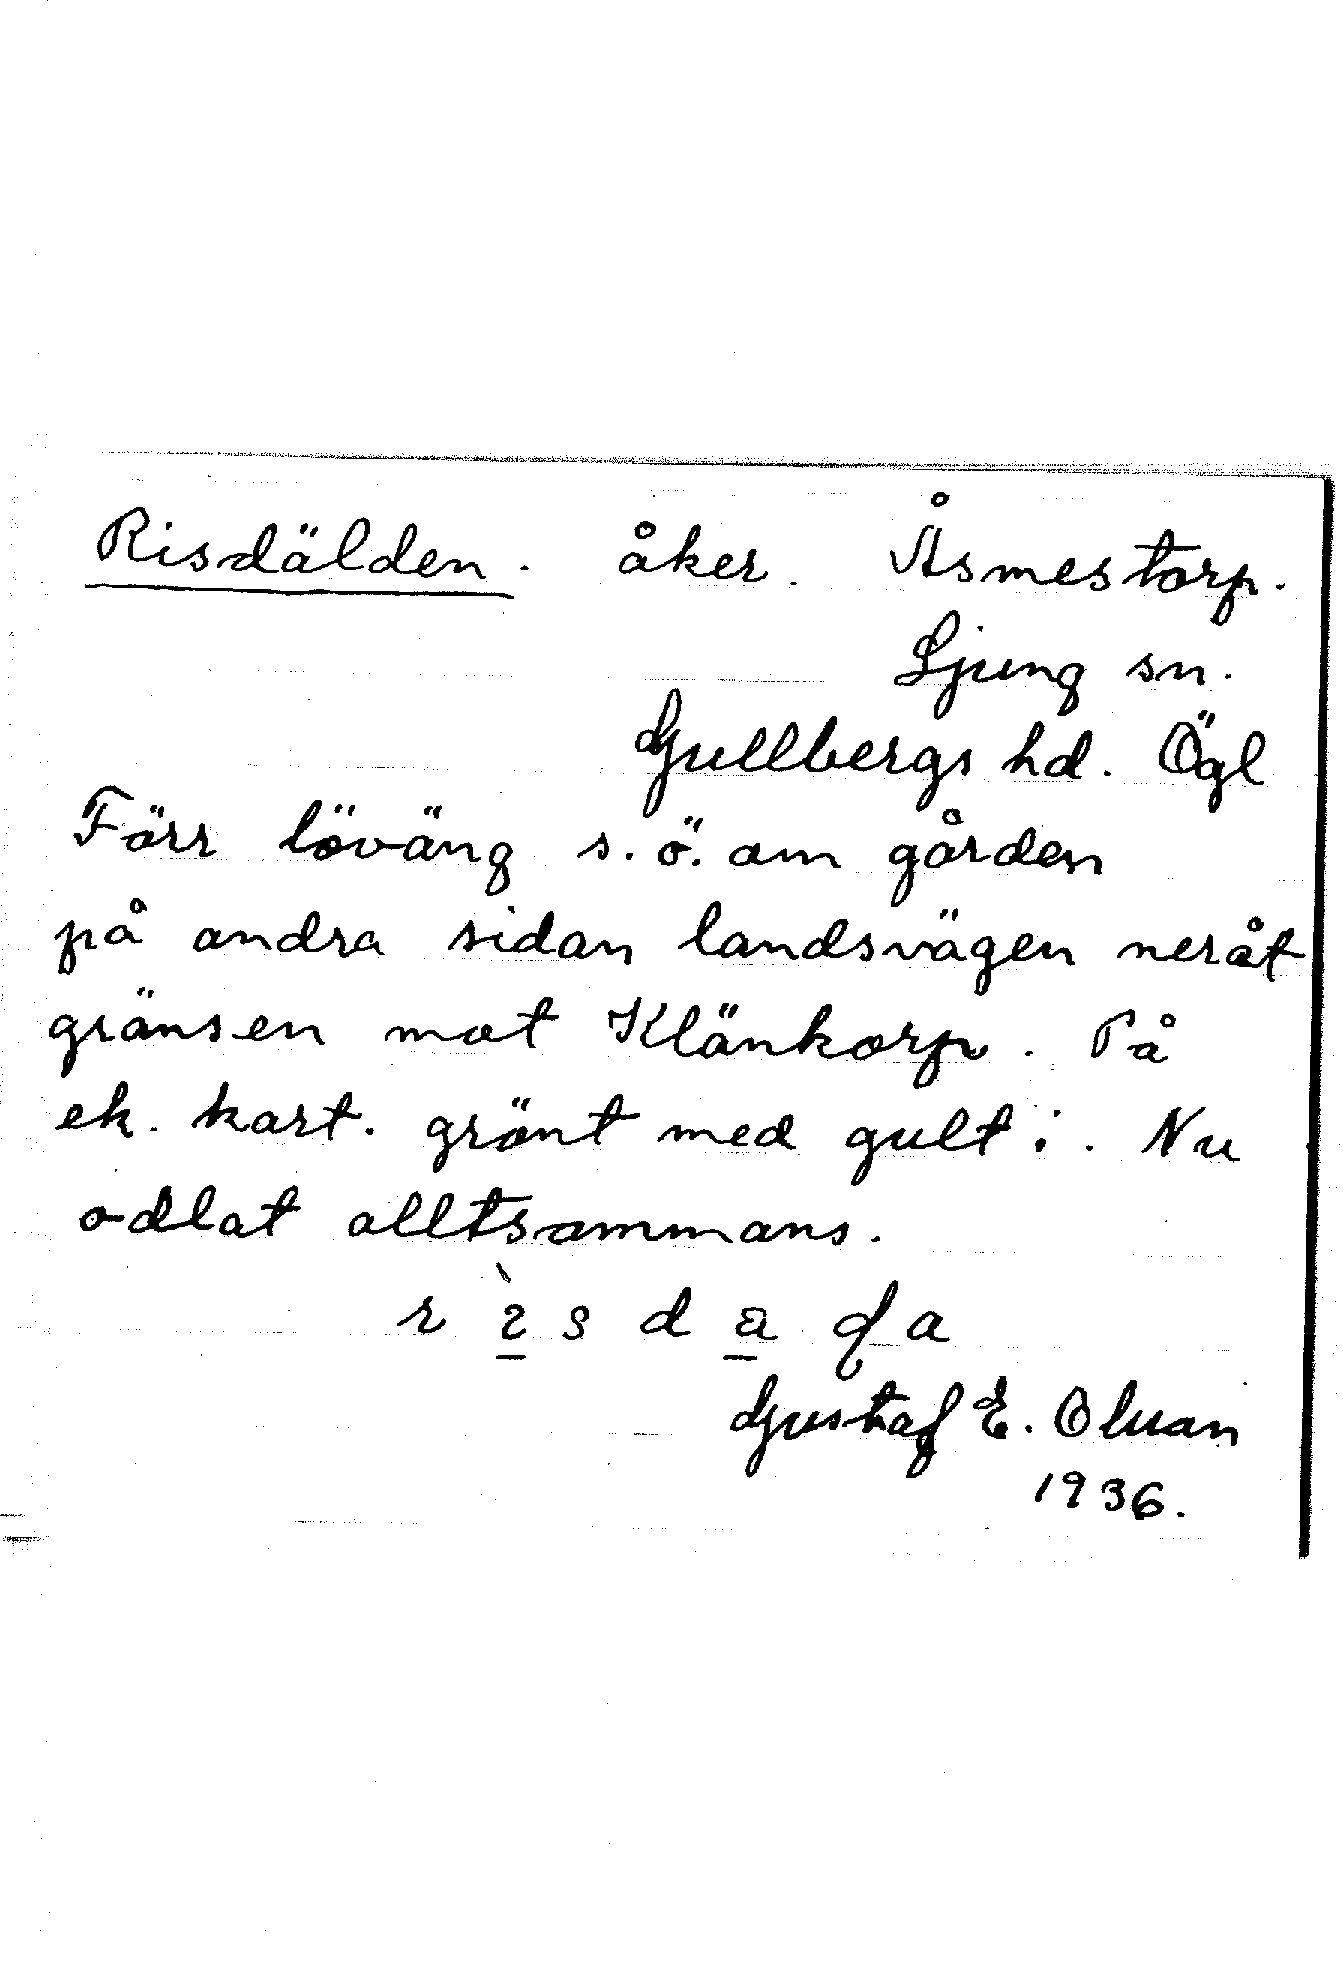 Risdälden. åker. Åsmestorp.
Ljung sn.
Gullbergs hd. Ögl
Förr löväng s.ö. om gården
på andra sidan landsvägen neråt
gränsen mot Klänkorp. På
ek. kart. grönt med gult i. Nu
odlat alltsammans.
Gustaf E. Olsson
1936.